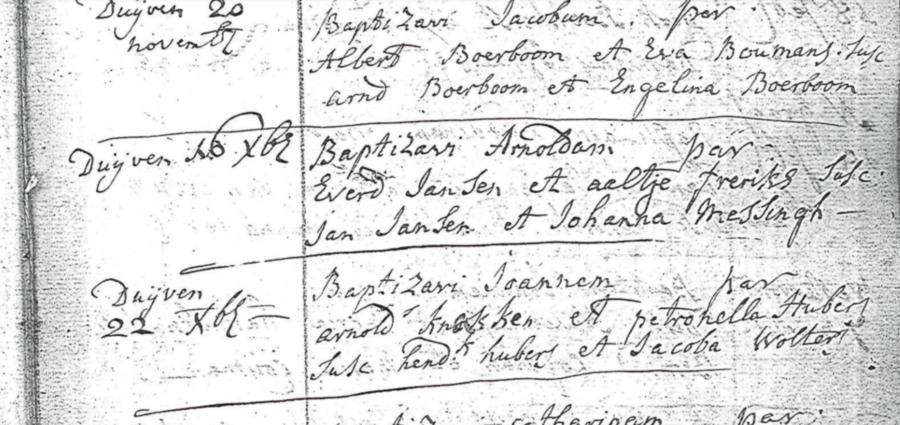 Duijven 20
novembr
Baptizavi Jacobum. par.
Albert Boerboom et Eva Boumans. Susc
arnd Boerboom et Engelina Boerboom
Duijven Xbr
Baptizavi Arnoldam par
Everd Jansen et aaltje freriks Susc.
Jan Jansen et Johanna Messingh —
Duijven
22 Xbr —
Baptizavi Joannem par
arnold et petronella Hubers
Susc hend. hubers et Jacoba Wolters
catharinam par.